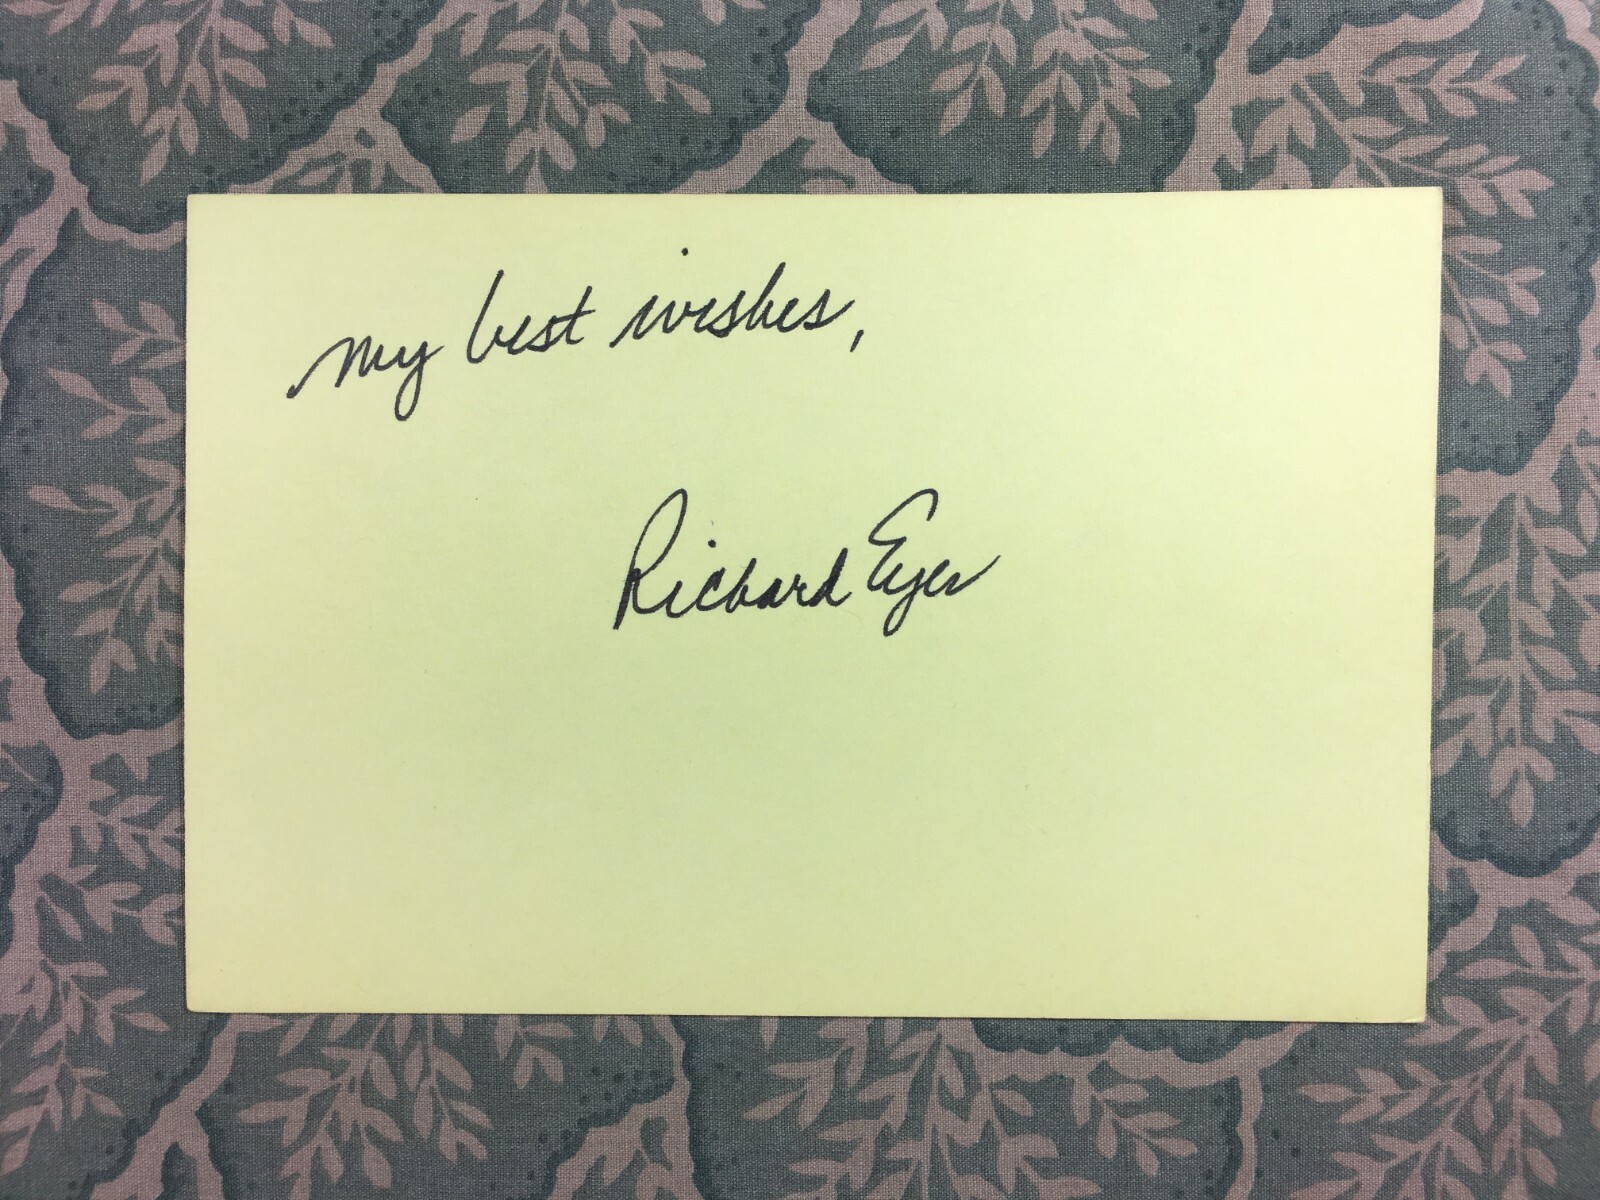 my best wishes,
Richard Eyer